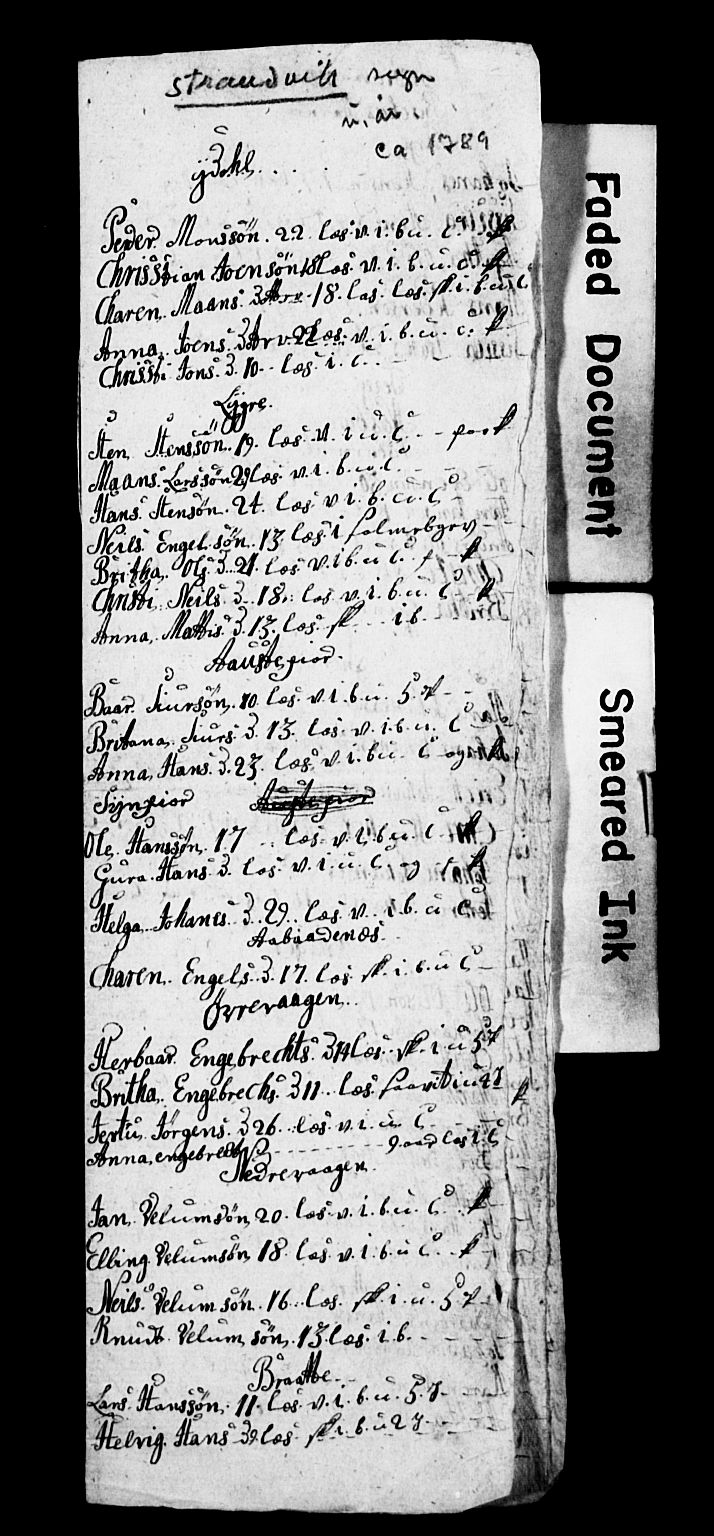 strandvik sogn
u. år.
ca 1789
Peder Monssön. 22. læs. v. i. b. u. C.
Chrisstian Joensön 18 læs. v. i. b. u. C.
Charen Maans. D. 18. læs. sk. i. b. u. C
Anna. Joens. D. 22 læs. v. i. b. u. C.
Christi Jons. D. 10. læs. i. C.
Lygre.
Sten Stenssön. 19. læs. v. i. u. C
Maans. Larssön 29 læs. v. i. b. u. C
Hans. Stensön. 24. læs v i. b. u. C
Neils Engel. sön. 13 læs i
Britha. Ols D. 21. læs v. i b. u C.
Christi. Neils D. 18. læs v. i. b. u. C
Anna, Mattis D. 13. læs. sk. i b.
Aaustegior.
Baar Siursön. 10. læs. v. i. b. u. 5.
Britana. Siurs D. 13. læs. v. i. b. u. C
Anna, Hans. D. 23. læs. v. i. b. u. C
Synsior
Ole. Hanssön. 17 læs. v. i. b. u. C.
Gura. Hans D. læs v. i. u. C og
Helga. Johanes D. 29. læs v. i. b. u C
Aabaadenæs
Charen. Engels. D. 17. læs sk. i. b. u C
Övrevaagen.
Herbaar Engebrechts. D 14 læs. sk. i. u 5
Britha, Engebrechs. D 11. læs.
Jørgens. D 26. læs. v. i. u. C
Anna, engebrechts D 9 aar læs i. C
Nedrevaagen
Jan. Velumsön 20. læs. v. i. b. u. C.
Elling Velumsön 18. læs v. i. b. u C.
Neils. Velumsön. 16. læs. sk. i. u. 5
Knudt Velum sön. 13. læs. i b.
Braatte.
Lars. Hanssön. 11. læs v. i. b. u. 5.
Helvig. Hans D. læs. sk i. b. u 2
Faded Document
Smeared Ink